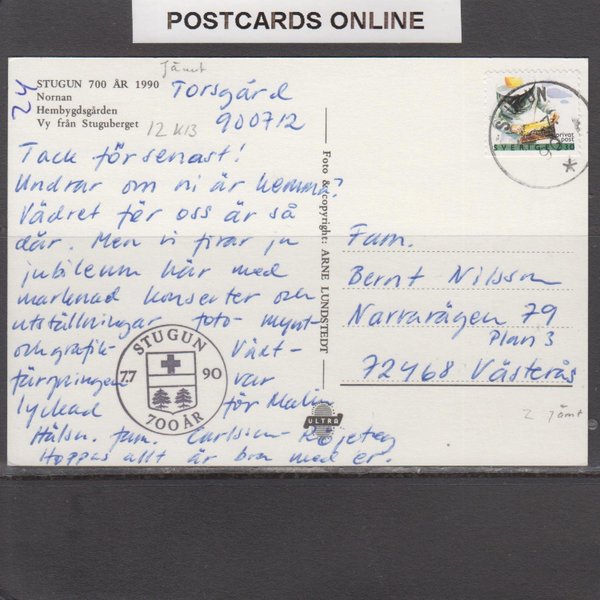 POSTCARDS ONLINE
Jämt
STUGUN 700 ÅR 1990
Nornan
Hembygdsgården
Vy från Stuguberget
24
12 KB
Torsgård
900712
Tack för senast!
Undrar om ni är hemma?
Vädret för oss är så
där. Men vi firar ju
jubileum här med
marknad konserter och
utställningar foto- mynt
och grafik- Växt-
färgningen var
lyckad för Malin
Hälsn. fam. Carlsson
Hoppas allt är bra med er.
STUGUN
7.7 90
700 ÅR
Foto & copyright: ARNE LUNDSTEDT
ULTRA
STUGUN
privat
post
SVERIGE 2.30
Fam.
Bernt Nilsson
Narvavägen 79
Plan 3
72468 Västerås
2 Jämt